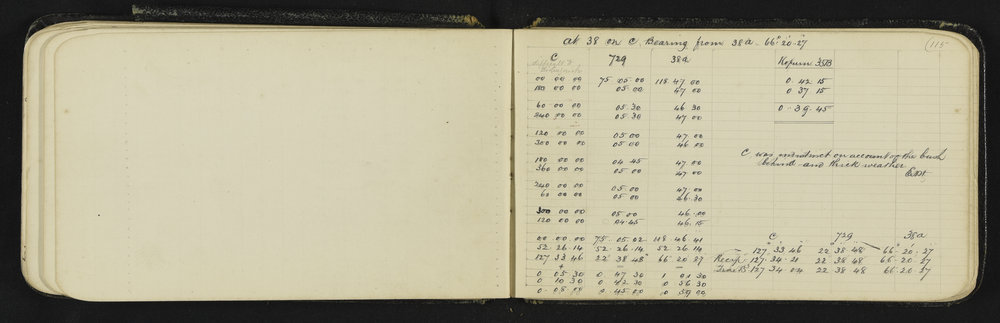 At 38 on C. Bearing from 38a. 66°. 20'. 27 (115
C 72g 38a Return 38B
difficult to
00 00 00 75. 05. 00 118. 47. 00 0. 42. 15
180 00 00 05. 00 47. 00 0 37 15
60 00 00 05. 30 46. 30 0. 39. 45
240 00 00 05. 30 47. 00
120 00 00 05. 00 47. 00
300 00 00 05. 00 46. 00
C was indistinct on account of the bush
180 00 00 04. 45 47. 00 behind and thick weather
360 00 00 05. 00 47. 00
240 00 00 05. 00 47. 00
60 00 00 05. 00 46. 30
300 00 00 05. 00 46. 00
120 00 00 04. 45 46. 15
C 72g 38a
00 00 00 75. 05. 02 118. 46. 41 127. 33. 46 22° 38. 48 66°. 20. 27
52. 26. 14 52. 26. 14 52. 26. 14 Recip 127. 34. 21 22. 38. 48 66. 20. 27
127 33 46 22° 38. 48" 66. 20. 27 127. 34. 04 22. 38. 48 66. 20. 27
0 05 30 0. 47. 30 1 01 30
0 10 30 0. 42. 30 0 56 30
0 08 00 0. 45. 00 0 59 00